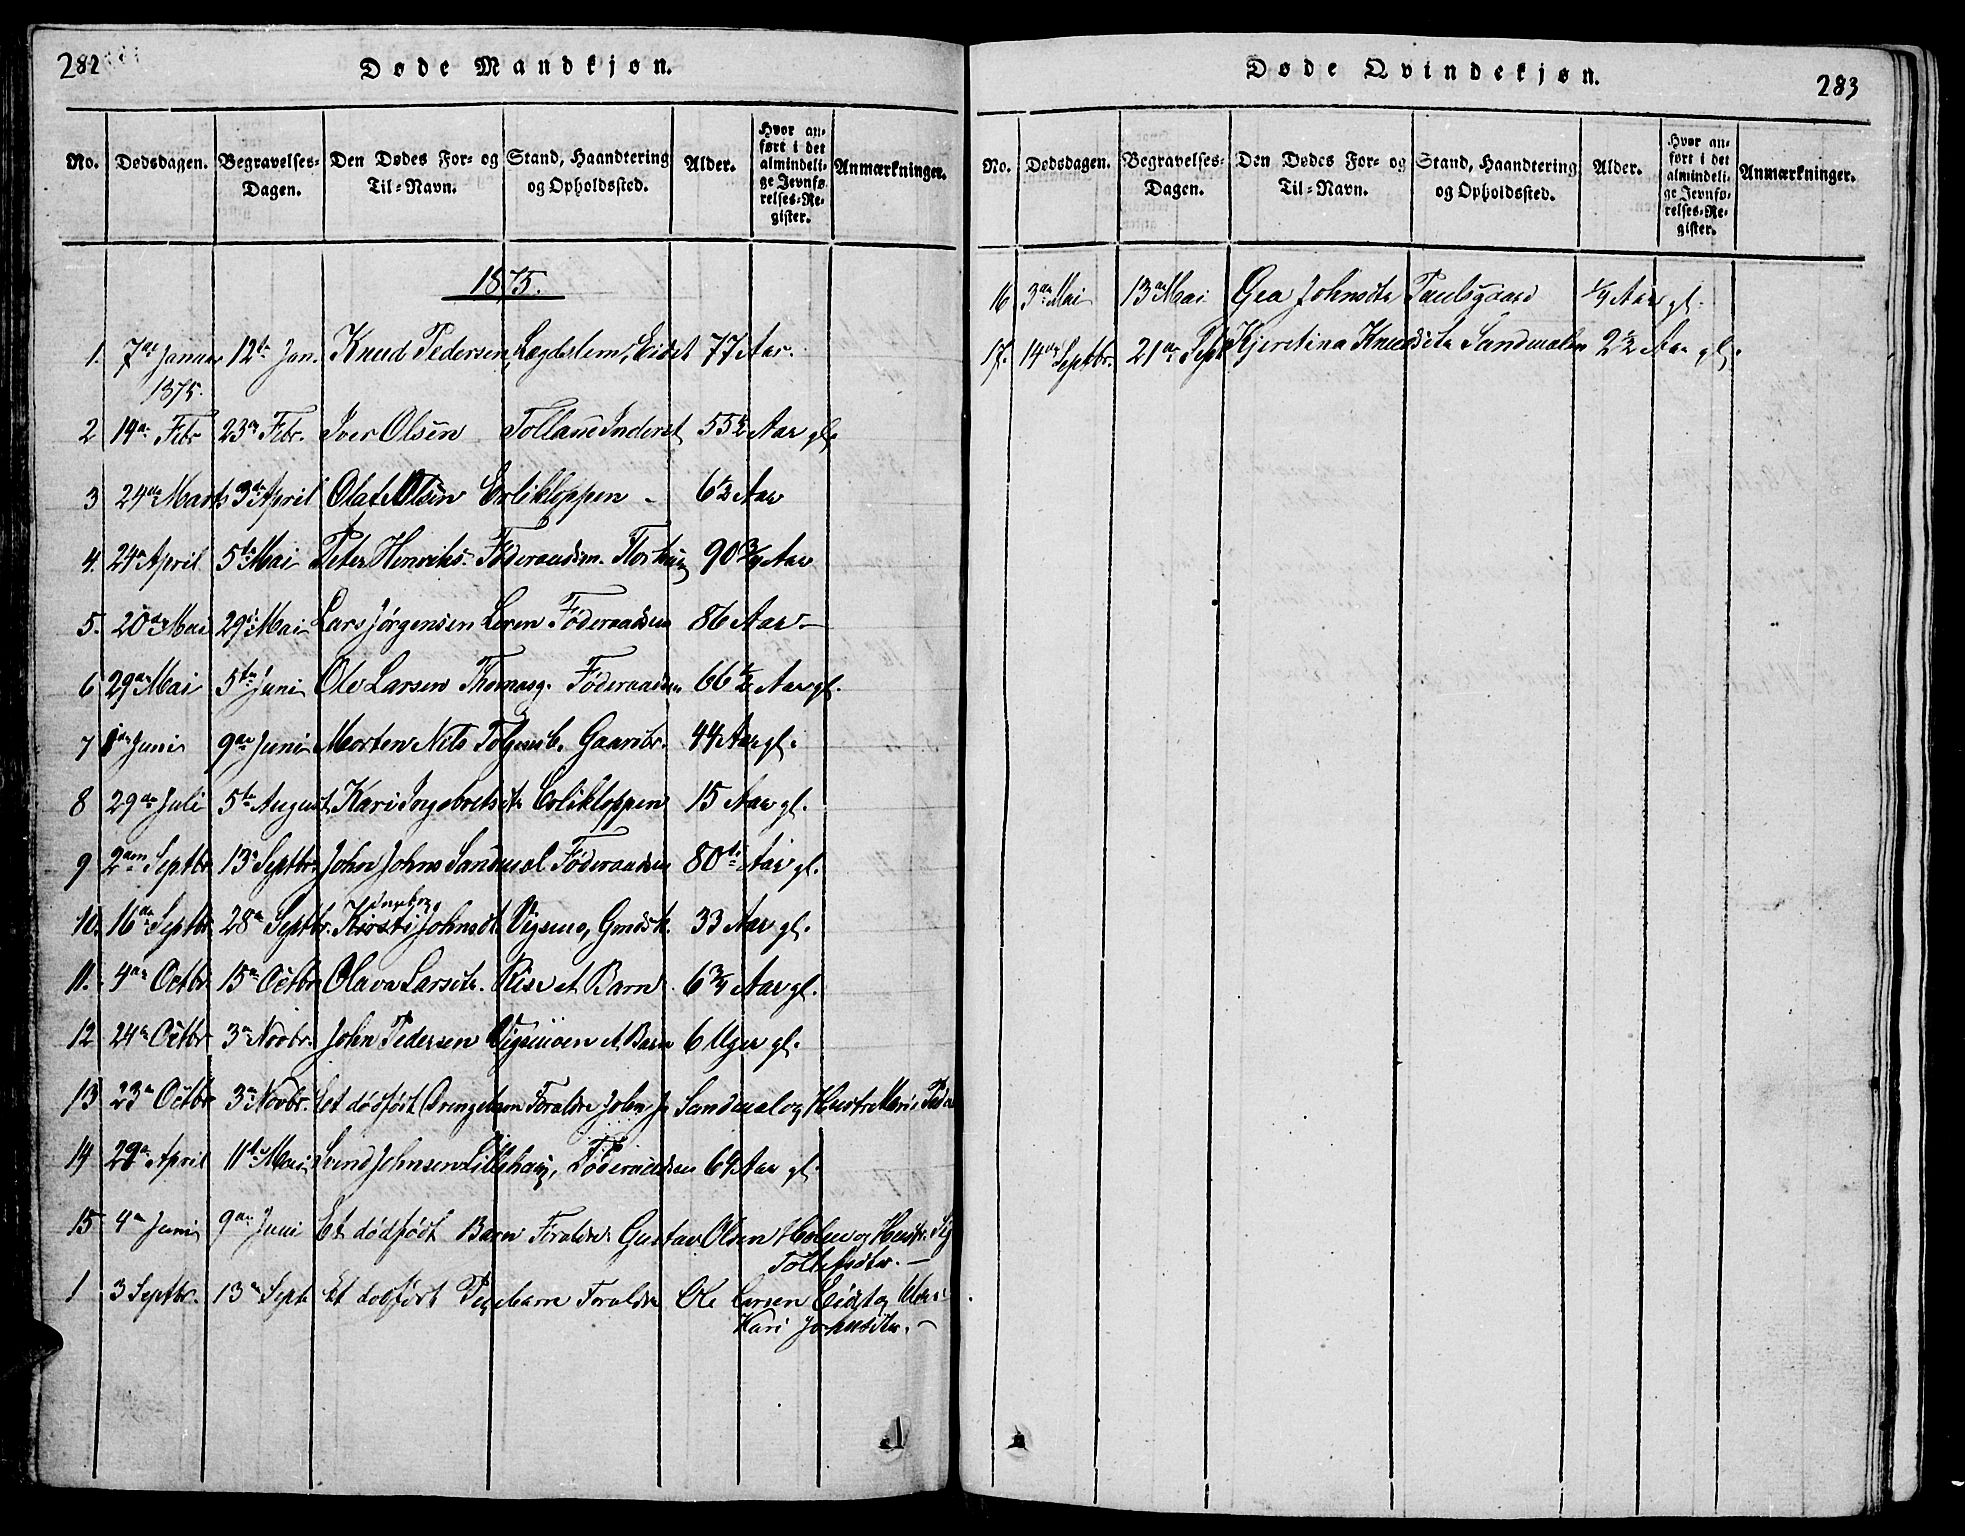 282
Døde Mandkjøn.
No. Dødsdagen. Begravelses-Dagen. Den Dødes For- og Til-Navn. Stand, Haandtering og Opholdssted. Alder. Hvor anført i det almindelige Jevnførelses-Register. Anmærkninger.
1875.
1. 7de Januar 12te Jan. Knud Pedersen, Lægdslem, Eidet 77 Aar.
1875.
2 19de Febr 23de Febr. Iver Olsen 55½ Aar gl.
3 24de Marts 3die April Olaf Olsen Erlikloppen - 6½ Aar
4. 24de April 5te Mai Peter Henriks. Føderaadsm. 90¾ Aar
5. 20de Mai 29de Mai Lars Jørgensen Føderaadsm 86 Aar -
6 29de Mai 5te Juni Ole Larsen Thomasg. Føderaadsm 66½ Aar gl.
7 Juni 9de Juni Morten Nils Gaardbr. 44 Aar gl.
8 29de Juli 5te August Kari Ingebretsdtr Erlikloppen 15 Aar gl.
9 2den Septbr 13de Septbr. John Johns Sandmæl Føderaadsm 80ti Aar gl.
Ingeborg
10. 16de Septbr 28de Septbr. Kirsti Johnsdt. Vigsmo, Gmdsk. 33 Aar gl.
11. 4de Octbr 15de Octbr Olava Larsdtr. Rise et Barn 6¾ Aar gl.
12 24de Octbr 3die Novbr. John Pedersen Vigsmoen et Barn 6 Uger gl.
13 23de Octbr 3die Novbr. Et dødfødt Drengebarn Foraldre John J. Sandmæl og Hustru Marie
14 29de April 11te Mai Svend Johnsen Lillehaug, Føderaadsm 69 Aar gl.
15 4de Juni 9de Juni Et dødfødt Barn Foraldre Gustav Olsen Holm og Hustr.
Tollefsdtr. -
1 3 Septbr. 13de Sept Et dødfødt Pigebarn Foraldre Ole Larsen Eidet og
Kari Johnsdtr. -
Døde Qvindekjøn.
283
No. Dødsdagen. Begravelses-Dagen. Den Dødes For- og Til-Navn. Stand, Haandtering og Opholdssted. Alder. Hvor anført i det almindelige Jevnførelses-Register. Anmærkninger.
16 3die Mai 13de Mai Gea Johnsdtr Paulsgaard ¼ Aar gl.
17. 14de Septbr. 21de Sept Kjerstina Knudsdtr Sandmælen 2½ Aar gl.